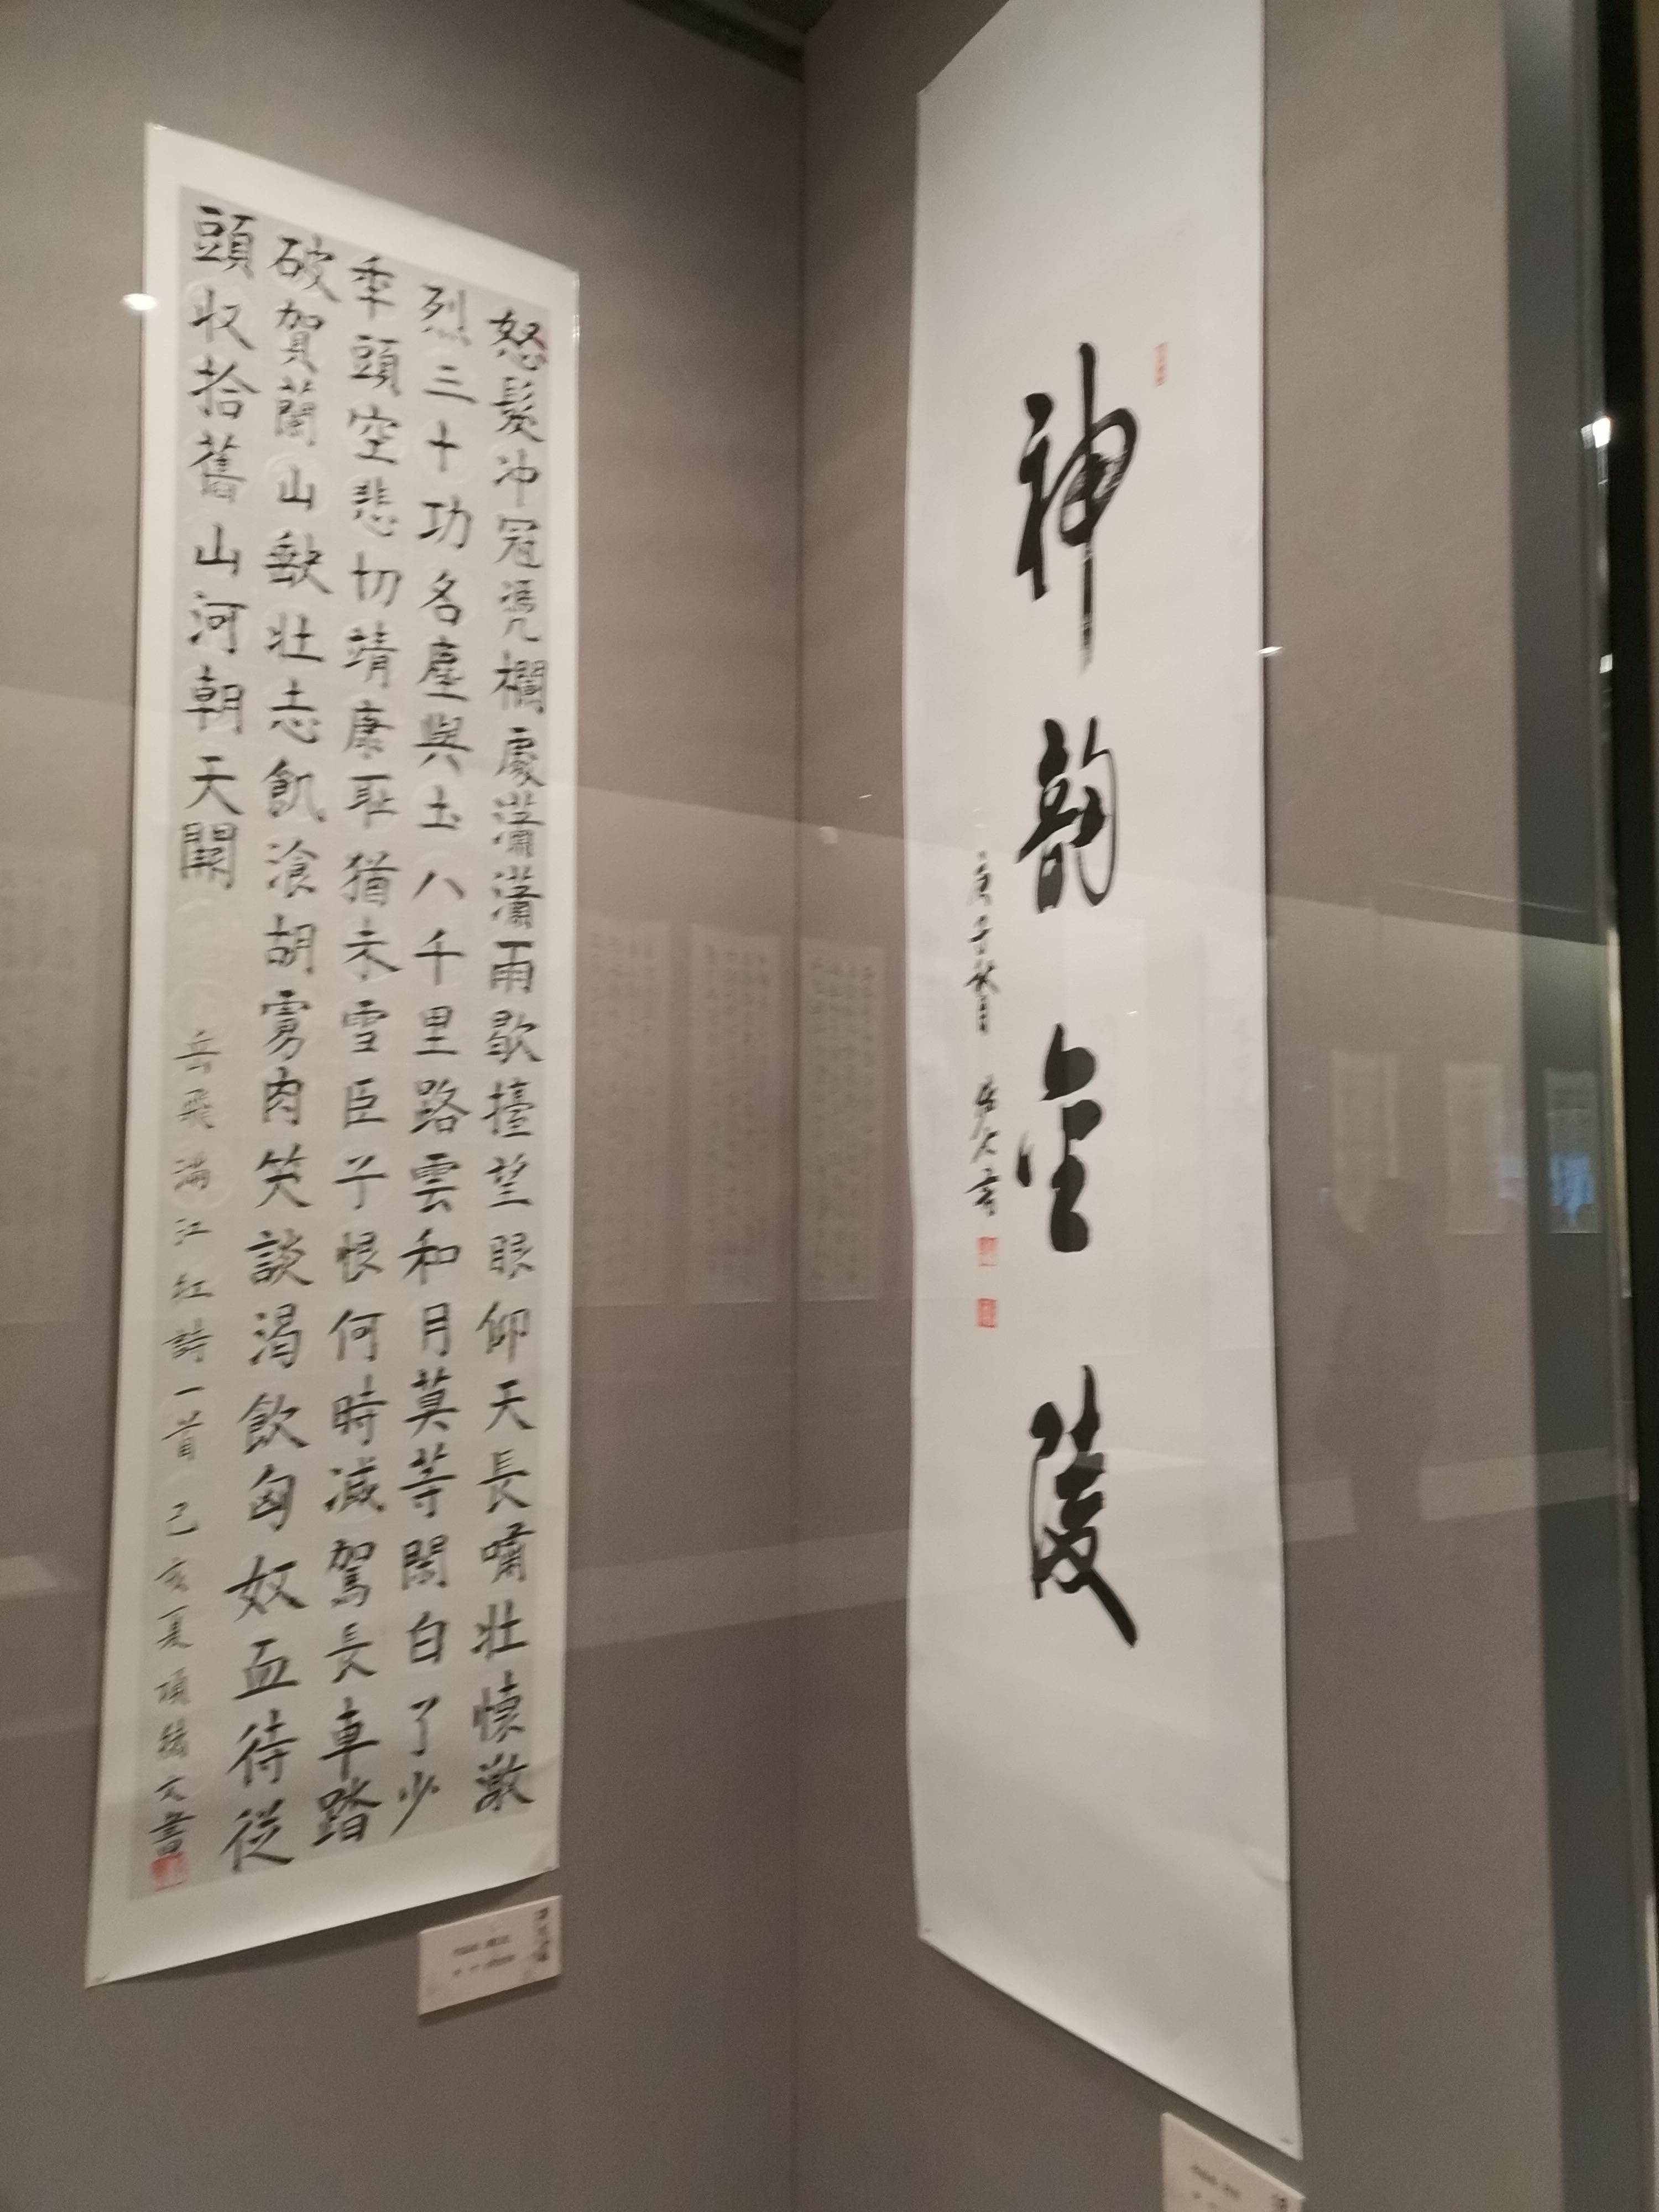 神韵金陵
庚子秋月
怒髮冲冠凭欄處瀟瀟雨歇擡望眼仰天長嘯壯懷激
烈三十功名塵與土八千里路雲和月莫等閑白了少
年頭空悲切靖康耻猶未雪臣子恨何時滅駕長車踏
破賀蘭山缺壯志飢飡胡虜肉笑談渴飲匈奴血待從
頭收拾舊山河朝天闕
岳飛滿江紅詩一首己亥夏 文書